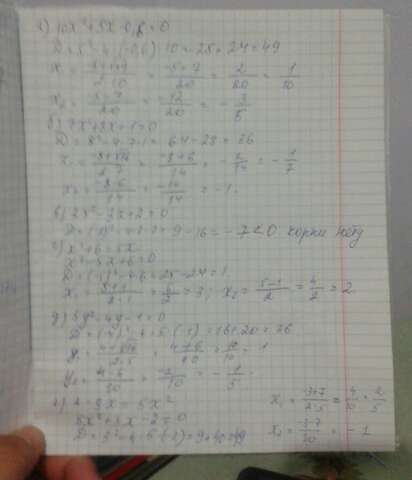 а) 10x² + 5x - 0,6 = 0
D = 5² - 4·(-0,6)·10 = 25 + 24 = 49
x₁ = (-5+√49)/(2·10) = (-5+7)/20 = 2/20 = 1/10
x₂ = (-5-7)/20 = -12/20 = -3/5
б) 7x² + 8x + 1 = 0
D = 8² - 4·7·1 = 64 - 28 = 36
x₁ = (-8+√36)/(2·7) = (-8+6)/14 = -2/14 = -1/7
x₂ = (-8-6)/14 = -14/14 = -1.
в) 2x² - 3x + 2 = 0
D = (-3)² - 4·2·2 = 9 - 16 = -7 < 0 корни нету
г) x² + 6 = 5x
x² - 5x + 6 = 0
D = (-5)² - 4·6 = 25 - 24 = 1
x₁ = (5+1)/(2·1) = 6/2 = 3; x₂ = (5-1)/2 = 4/2 = 2
д) 5y² - 4y - 1 = 0
D = (-4)² - 4·5·(-1) = 16 + 20 = 36
y₁ = (4+√36)/(2·5) = (4+6)/10 = 10/10 = 1
y₂ = (4-6)/10 = -2/10 = -1/5.
2 - 3x = 5x²
5x² + 3x - 2 = 0
D = 3² - 4·5·(-2) = 9 + 40 = 49
x₁ = (-3+7)/(2·5) = 4/10 = 2/5
x₂ = (-3-7)/10 = -1